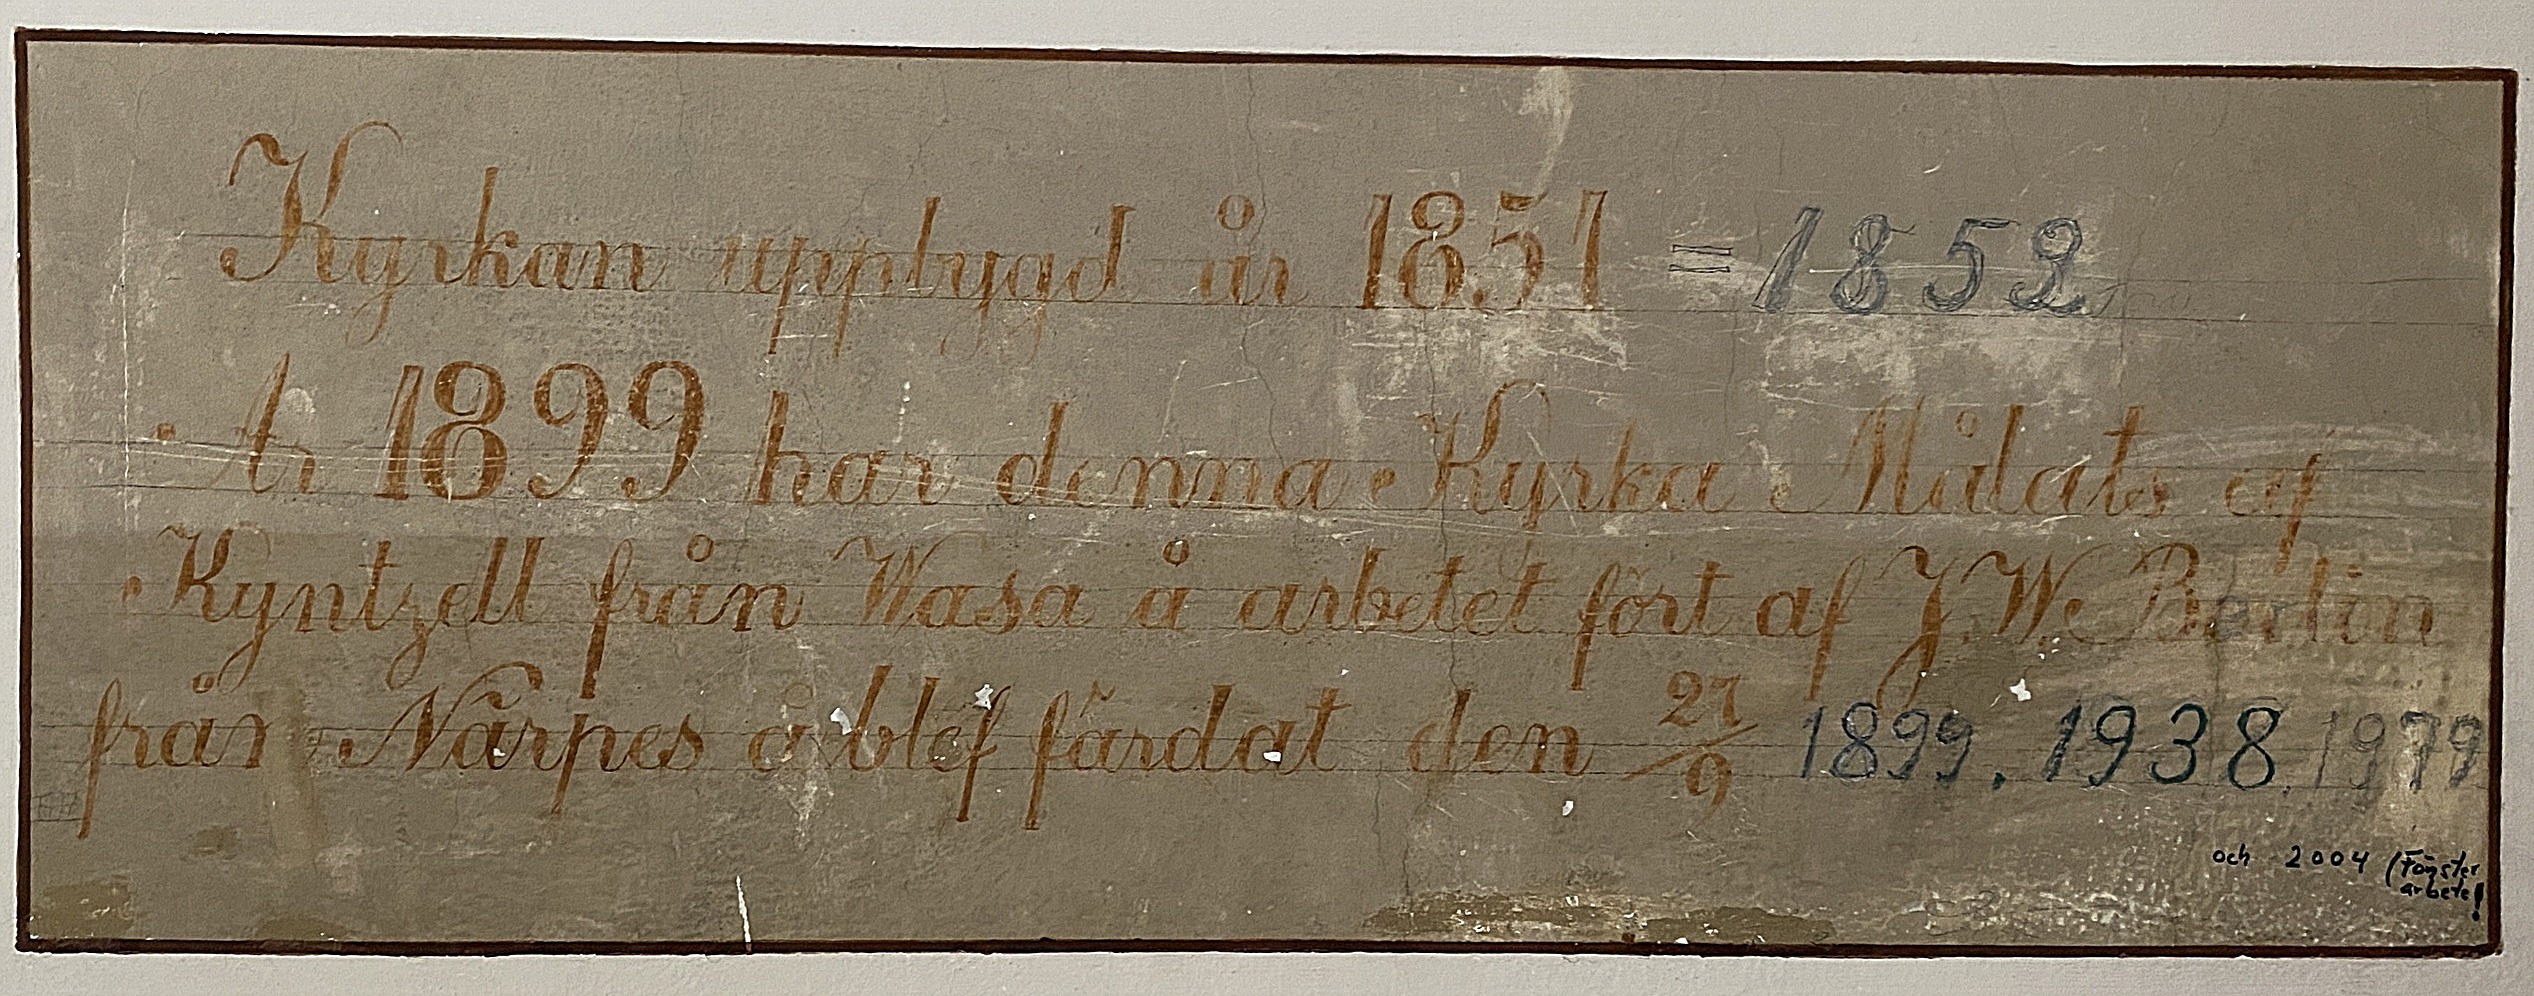 Kyrkan uppbygd år 1851 = 1852
År 1899 har denna Kyrka Målats af
Kyntzell från Wasa å arbetet fört af J. W. Berlin
från Närpes å blef färdat den 27/9 1899. 1938. 1979
och 2004 (Fönster
arbete!